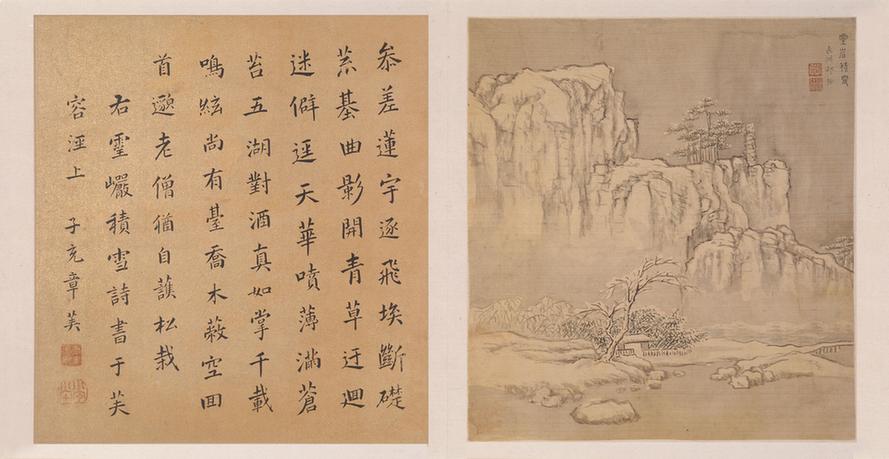 靈岩積雪
長洲邵彌
叅差蓮宇逐飛埃斷礎
荒基曲影開青草迂迴
迷僻逕天華噴薄滿蒼
苔五湖對酒真如掌千載
鳴絃尚有臺喬木蔽空回
首邈老僧猶自護松栽
右靈巗積雪詩書于芙
容湮上 子充章美